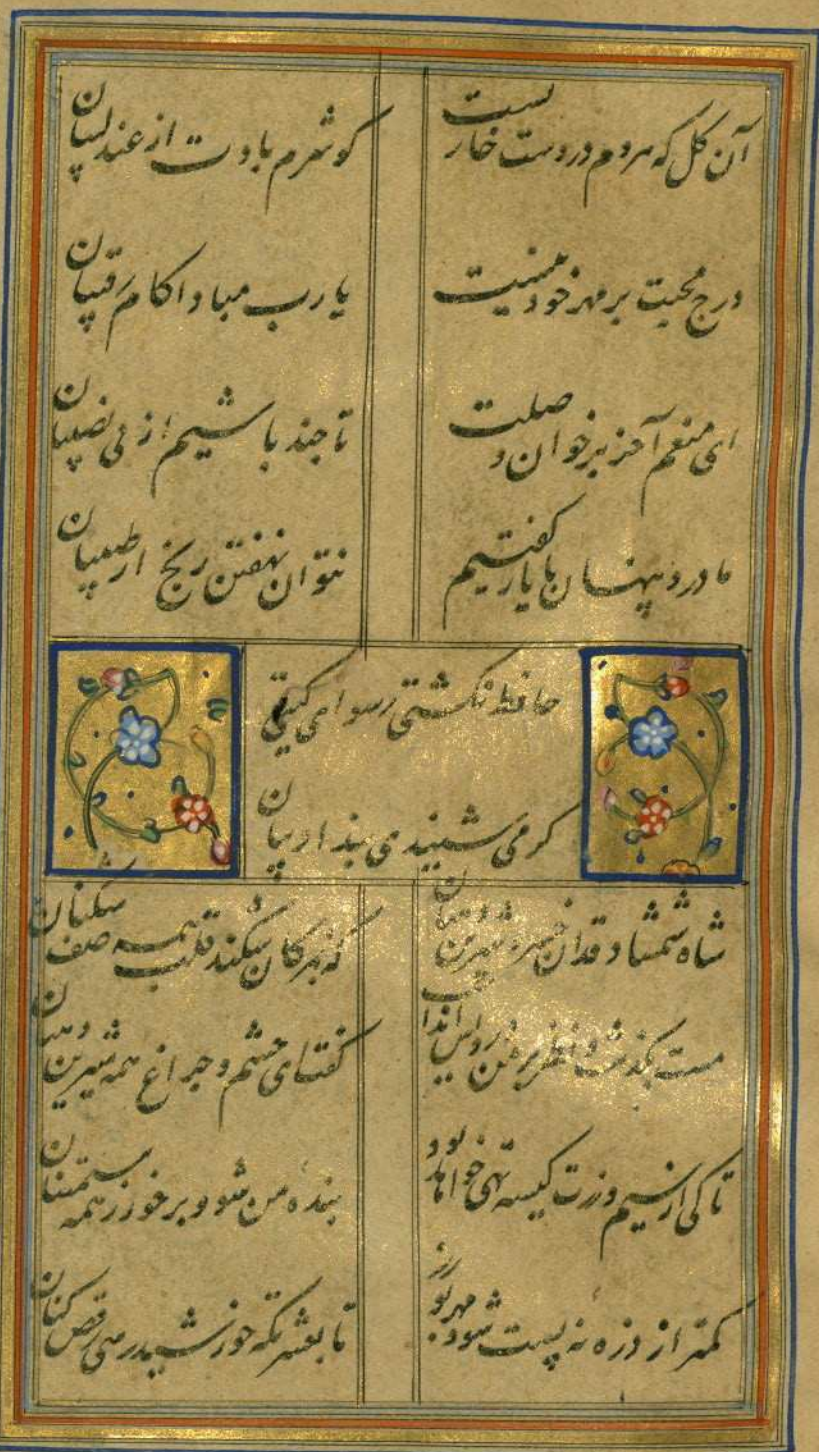 آن کل که هر دم در دست خاریست
کو شرم بادت از عندلیبان
درج محبت بر مهر خود نیست
یا رب مبادا کام رقیبان
ای منعم آخر بر خوان وصلت
تا چند باشیم از بی نصیبان
ما درد پنهان با یار کفتیم
نتوان نهفتن رنج از طبیبان
حافظ نکشتی رسوای کیتی
کر می شنیدی پند ادیبان
شاه شمشاد قدان خسرو شیرین دهنان
که بمژکان شکند قلب همه صف شکنان
مست بکذشت و نظر بر من درویش انداخت
کفت ای چشم و چراغ همه شیرین دهنان
تا کی از سیم و زرت کیسه تهی خواهد بود
بنده من شو و برخور ز همه سیمتنان
کمتر از ذره نه پست مشو مهر بورز
تا بعشرتکه خورشید رسی رقص کنان